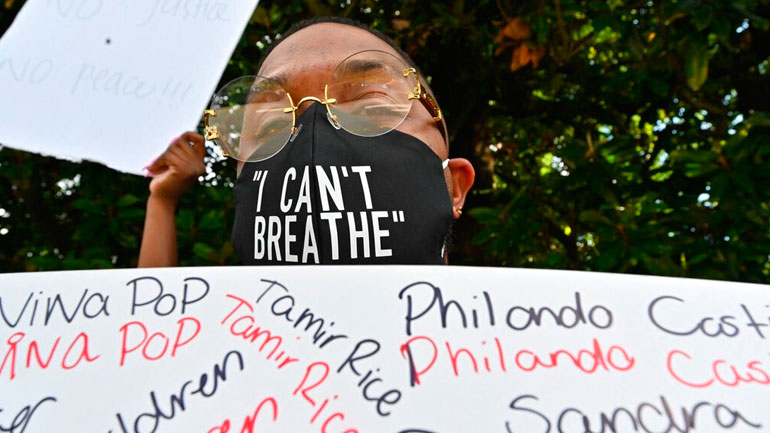 NO Justice
NO peace!!!
"I CAN'T
BREATHE"
Nina Pop
Nina Pop
Tamir Rice
Tamir Rice
Philando Casti
Philando Cas
Sandra